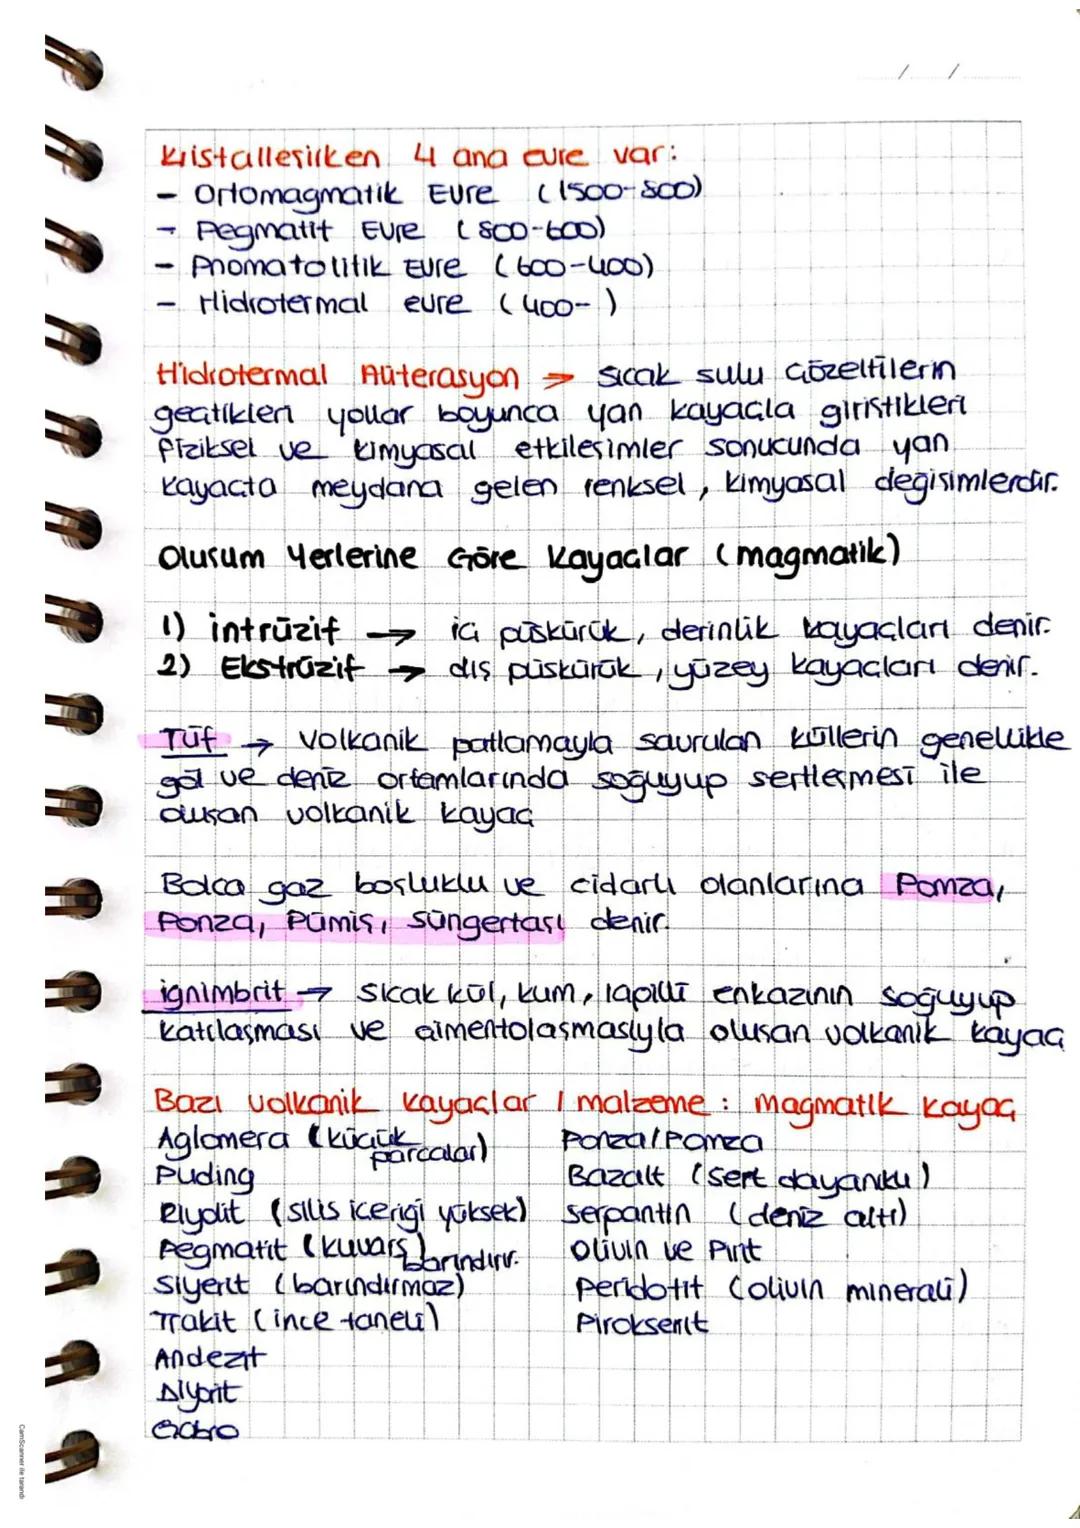 / /
Kristalleşirken 4 ana evre var:
- Ortomagmatik Evre (1500-800)
- Pegmatit Evre (800-600)
- Pnomatolitik Evre (600-400)
- Hidrotermal evre (400- )
Hidrotermal Alüterasyon → sıcak sulu çözeltilerin
geçtikleri yollar boyunca yan kayaçla giriştikleri
fiziksel ve kimyasal etkileşimler sonucunda yan
kayaçta meydana gelen renksel, kimyasal değişimlerdir.
Oluşum Yerlerine Göre Kayaçlar (magmatik)
1) İntrüzif → iç püskürük, derinlik kayaçları denir.
2) Ekstrüzif → dış püskürük, yüzey kayaçları denir.
Tüf → volkanik patlamayla savrulan küllerin genellikle
göl ve deniz ortamlarında soğuyup sertleşmesi ile
oluşan volkanik kayaç
Bolca gaz boşluklu ve cidarlı olanlarına Pomza,
Ponza, Pümis, Süngertaşı denir.
ignimbrit → sıcak kül, kum, lapilli enkazının soğuyup
katılaşması ve çimentolaşmasıyla oluşan volkanik kayaç
Bazı volkanik kayaçlar / malzeme : magmatik kayaç
Aglomera (küçük parçalar)
Puding
Riyolit (silis içeriği yüksek)
Pegmatit (kuvars) barındırır.
Siyenit (barındırmaz)
Trakit (ince taneli)
Andezit
Diyorit
Gabro
Ponza/Pomza
Bazalt (sert dayanıklı)
Serpantin (deniz altı)
Olivin ve Pirit
Peridotit (olivin minerali)
Piroksenit
CamScanner ile tarandı